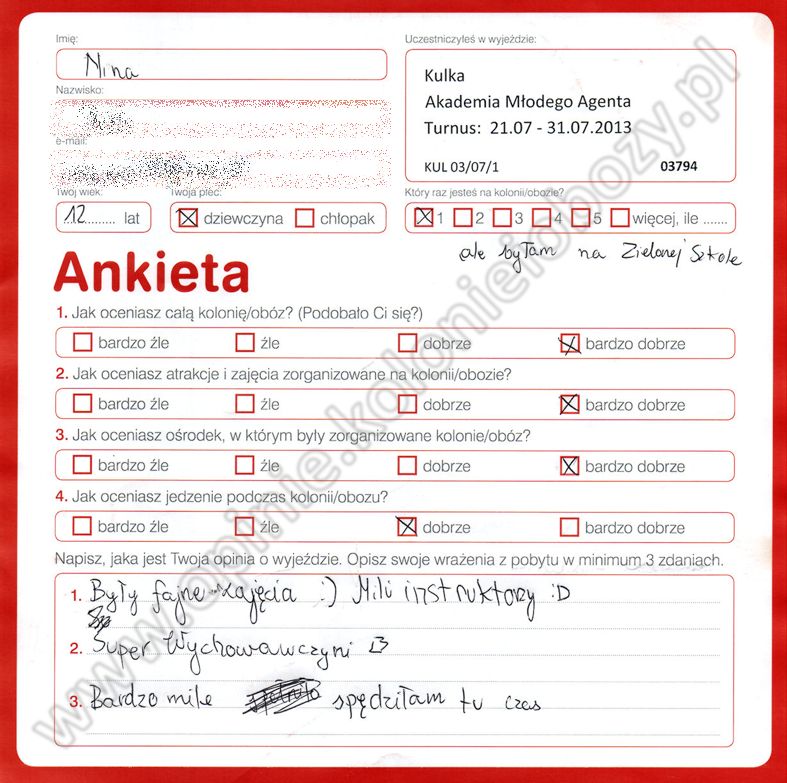 Imię:
Nina
Nazwisko:
e-mail:
Twój wiek:
12 lat
Twoja płeć:
dziewczyna chłopak
Uczestniczyłeś w wyjeździe:
Kulka
Akademia Młodego Agenta
Turnus: 21.07 - 31.07.2013
KUL 03/07/1 03794
Który raz jesteś na kolonii/obozie?
1 2 3 4 5 więcej, ile .......
ale byłam na Zielonej Szkole
Ankieta
1. Jak oceniasz całą kolonię/obóz? (Podobało Ci się?)
bardzo źle źle dobrze bardzo dobrze
2. Jak oceniasz atrakcje i zajęcia zorganizowane na kolonii/obozie?
bardzo źle źle dobrze bardzo dobrze
3. Jak oceniasz ośrodek, w którym były zorganizowane kolonie/obóz?
bardzo źle źle dobrze bardzo dobrze
4. Jak oceniasz jedzenie podczas kolonii/obozu?
bardzo źle źle dobrze bardzo dobrze
Napisz, jaka jest Twoja opinia o wyjeździe. Opisz swoje wrażenia z pobytu w minimum 3 zdaniach.
1. Były fajne zajęcia :) Mili instruktorzy :D
2. Super Wychowawczyni :D
3. Bardzo mile spędziłam tu czas
www.opinie.kolonieiobozy.pl